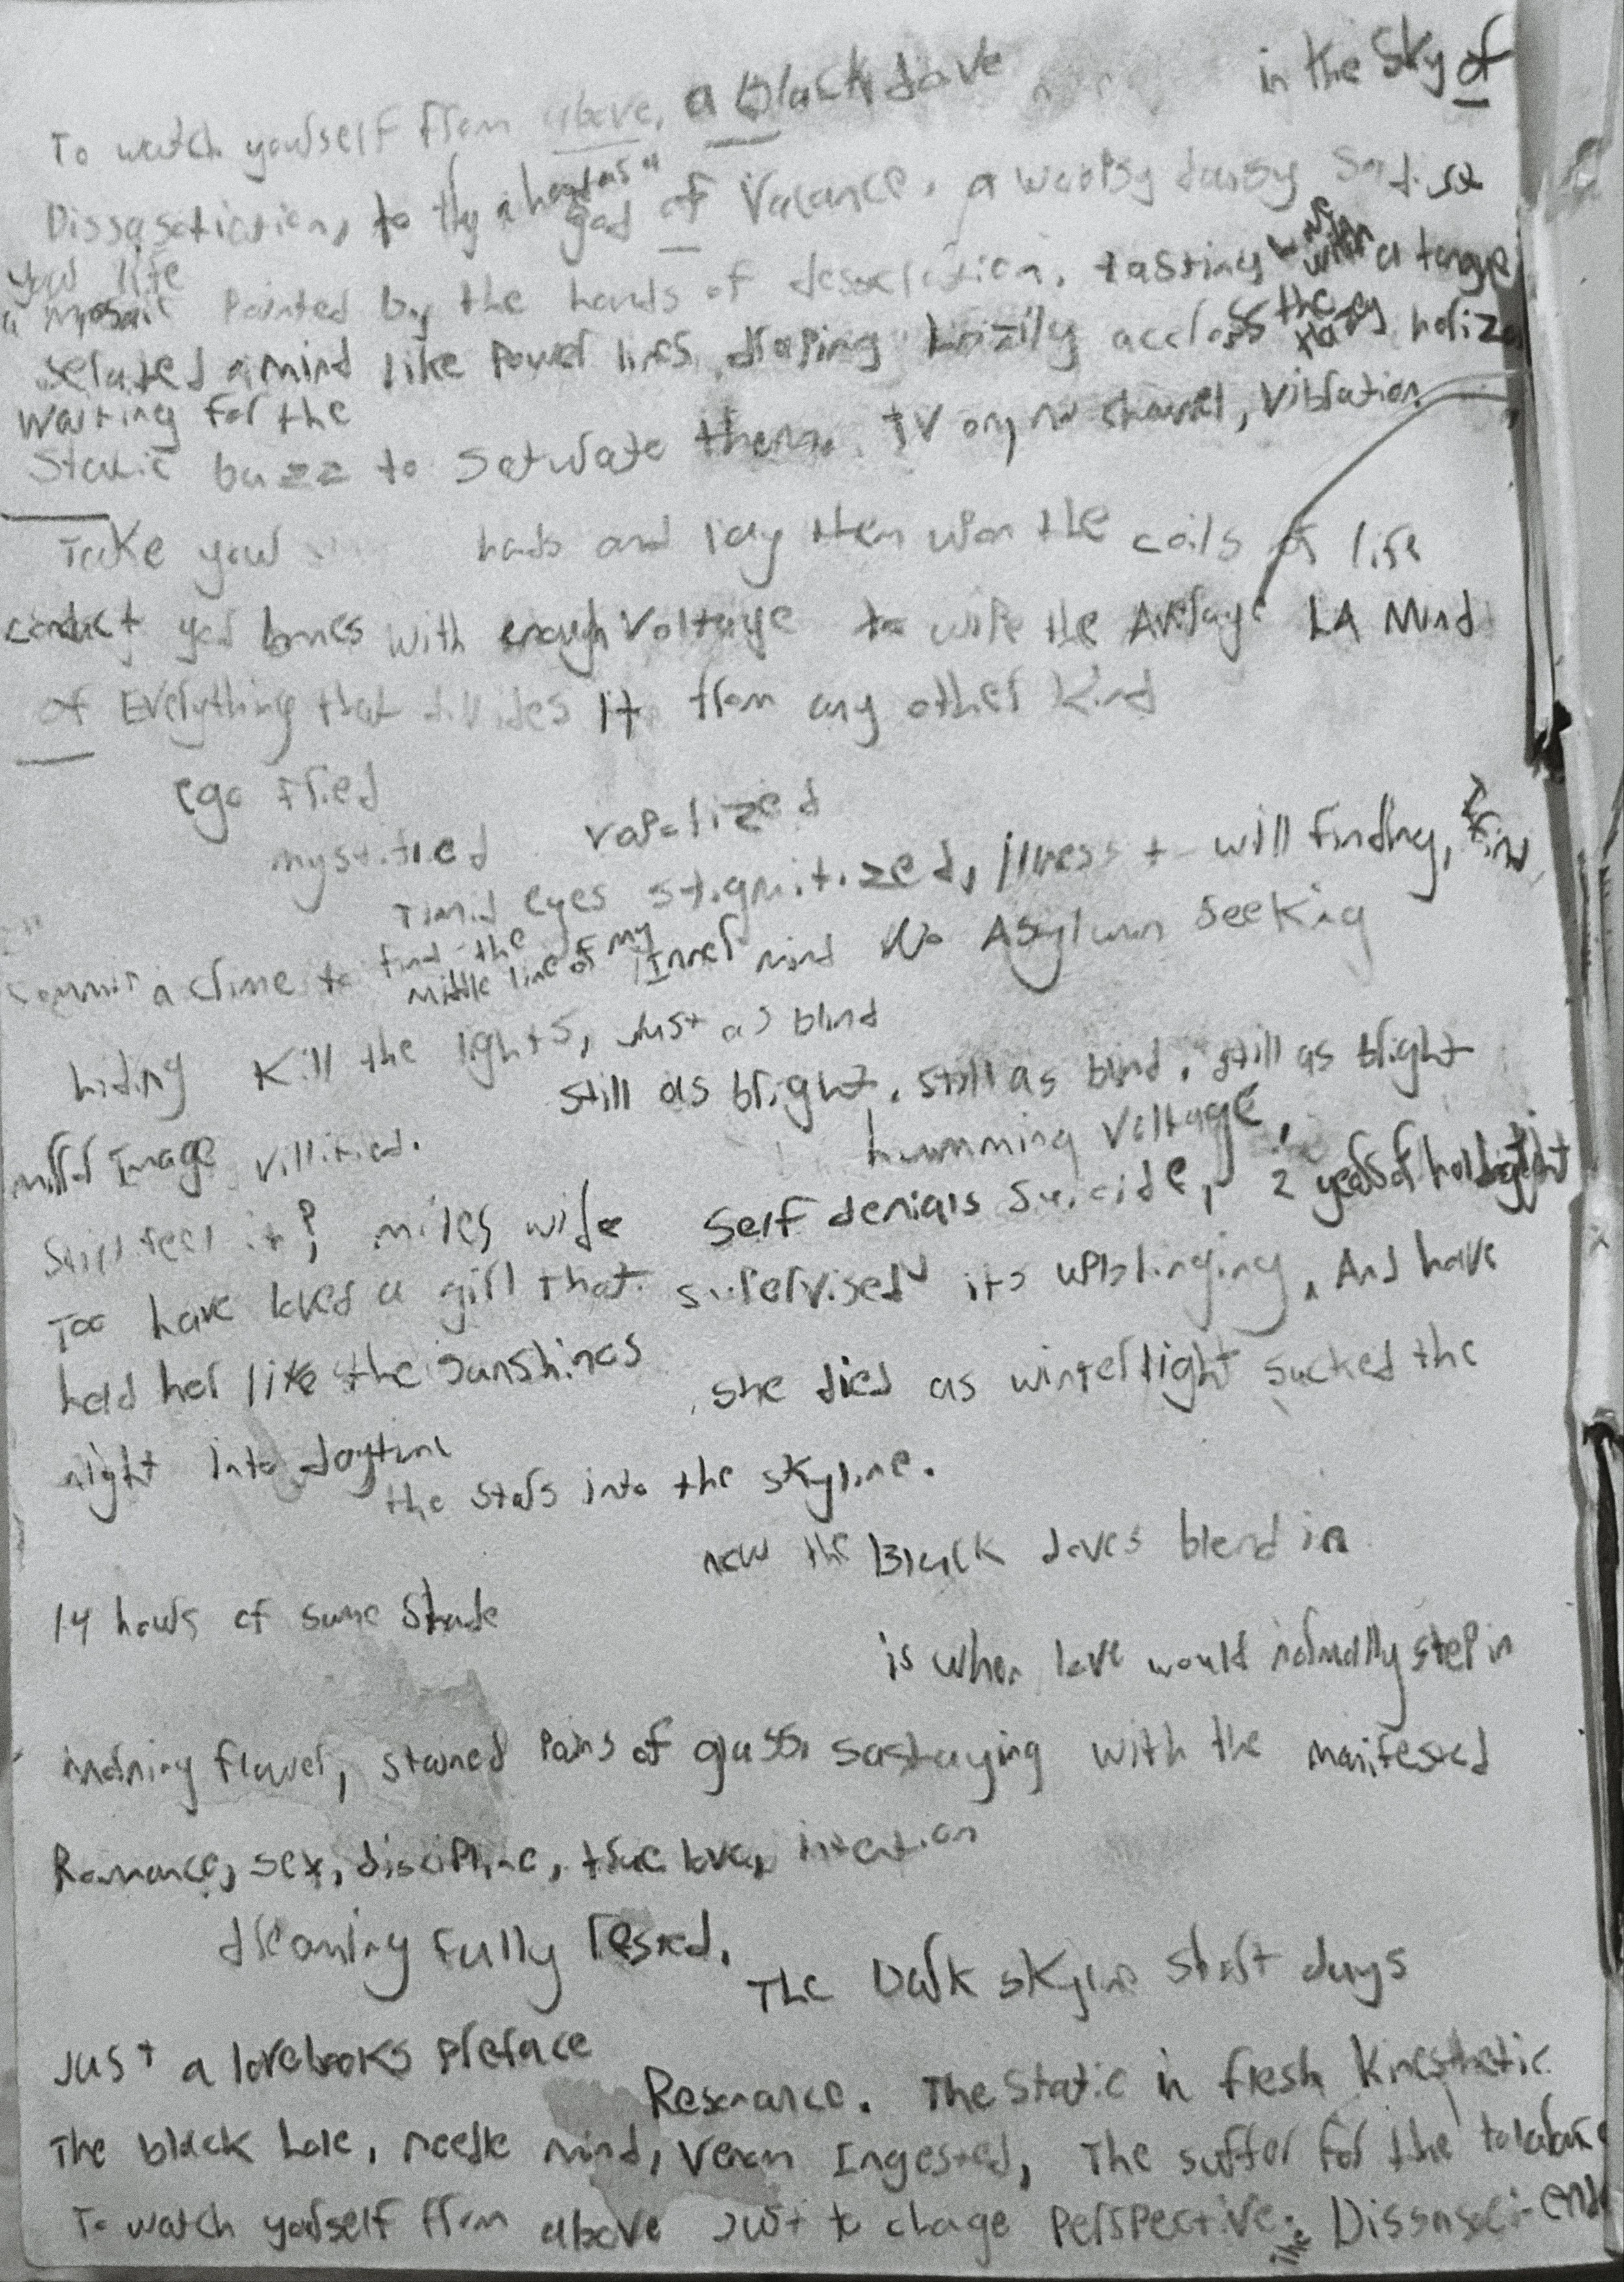 To watch yourself from above, a black dove in the Sky of
Dissasotiction, to thy god of Valance. a woopsy daisy
your life
a mosaic Painted by the hands of tasting with a
mind like Power lines draping Lazily accross the Hazy
waiting for the
Static buzz to saturate them. TV on, no channel, Vibration
Take your hands and lay them upon the coils of life
conduct your bones with enough Voltage to wipe the Average LA Mind
of Everything that divides it from any other Kind
ego fried
mystified vaporized
Timid eyes stigmitized, illness + will finding, find
Commit a crime to find the middle line of my Inner mind No Asylumn Seeking
hiding Kill the lights, Just as blind
Still as bright. Still as blind. still as bright
mirror Image villified. humming Voltage,
Still feel it? miles wide Self denials Suicide, 2 years of
Too have loved a girl that supervised its upbringing, And have
held her like the sunshines she died as winterlight sucked the
night into daytime
the stars into the skyline.
now the Black doves blend in
14 hours of same Shade
is when love would normally step in
morning flower, stained Pains of glass, with the manifested
Romance, sex, discipline, true love, intention
dreaming fully rested.
The Dark skyline short days
Just a lovebooks preface
Resonance. The Static in fresh Kinesthetic
The black hole, needle mind, Venom Ingested, The suffer for the
To watch yourself from above Just to change Perspective. The